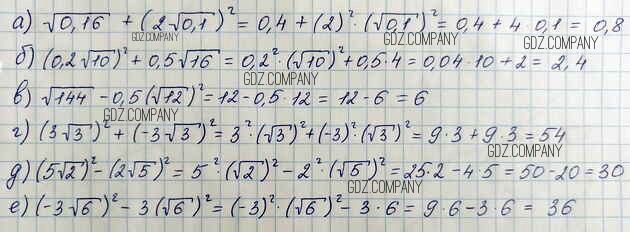 а) √0,16 + (2√0,1)² = 0,4 + (2)² · (√0,1)² = 0,4 + 4 · 0,1 = 0,8
GDZ.COMPANY GDZ.COMPANY GDZ.COMPANY
б) (0,2√10)² + 0,5√16 = 0,2² · (√10)² + 0,5 · 4 = 0,04 · 10 + 2 = 2,4
в) √144 - 0,5(√12)² = 12 - 0,5 · 12 = 12 - 6 = 6
GDZ.COMPANY
г) (3√3)² + (-3√3)² = 3² · (√3)² + (-3)² · (√3)² = 9 · 3 + 9 · 3 = 54
GDZ.COMPANY
д) (5√2)² - (2√5)² = 5² · (√2)² - 2² · (√5)² = 25 · 2 - 4 · 5 = 50 - 20 = 30
GDZ.COMPANY
е) (-3√6)² - 3(√6)² = (-3)² · (√6)² - 3 · 6 = 9 · 6 - 3 · 6 = 36